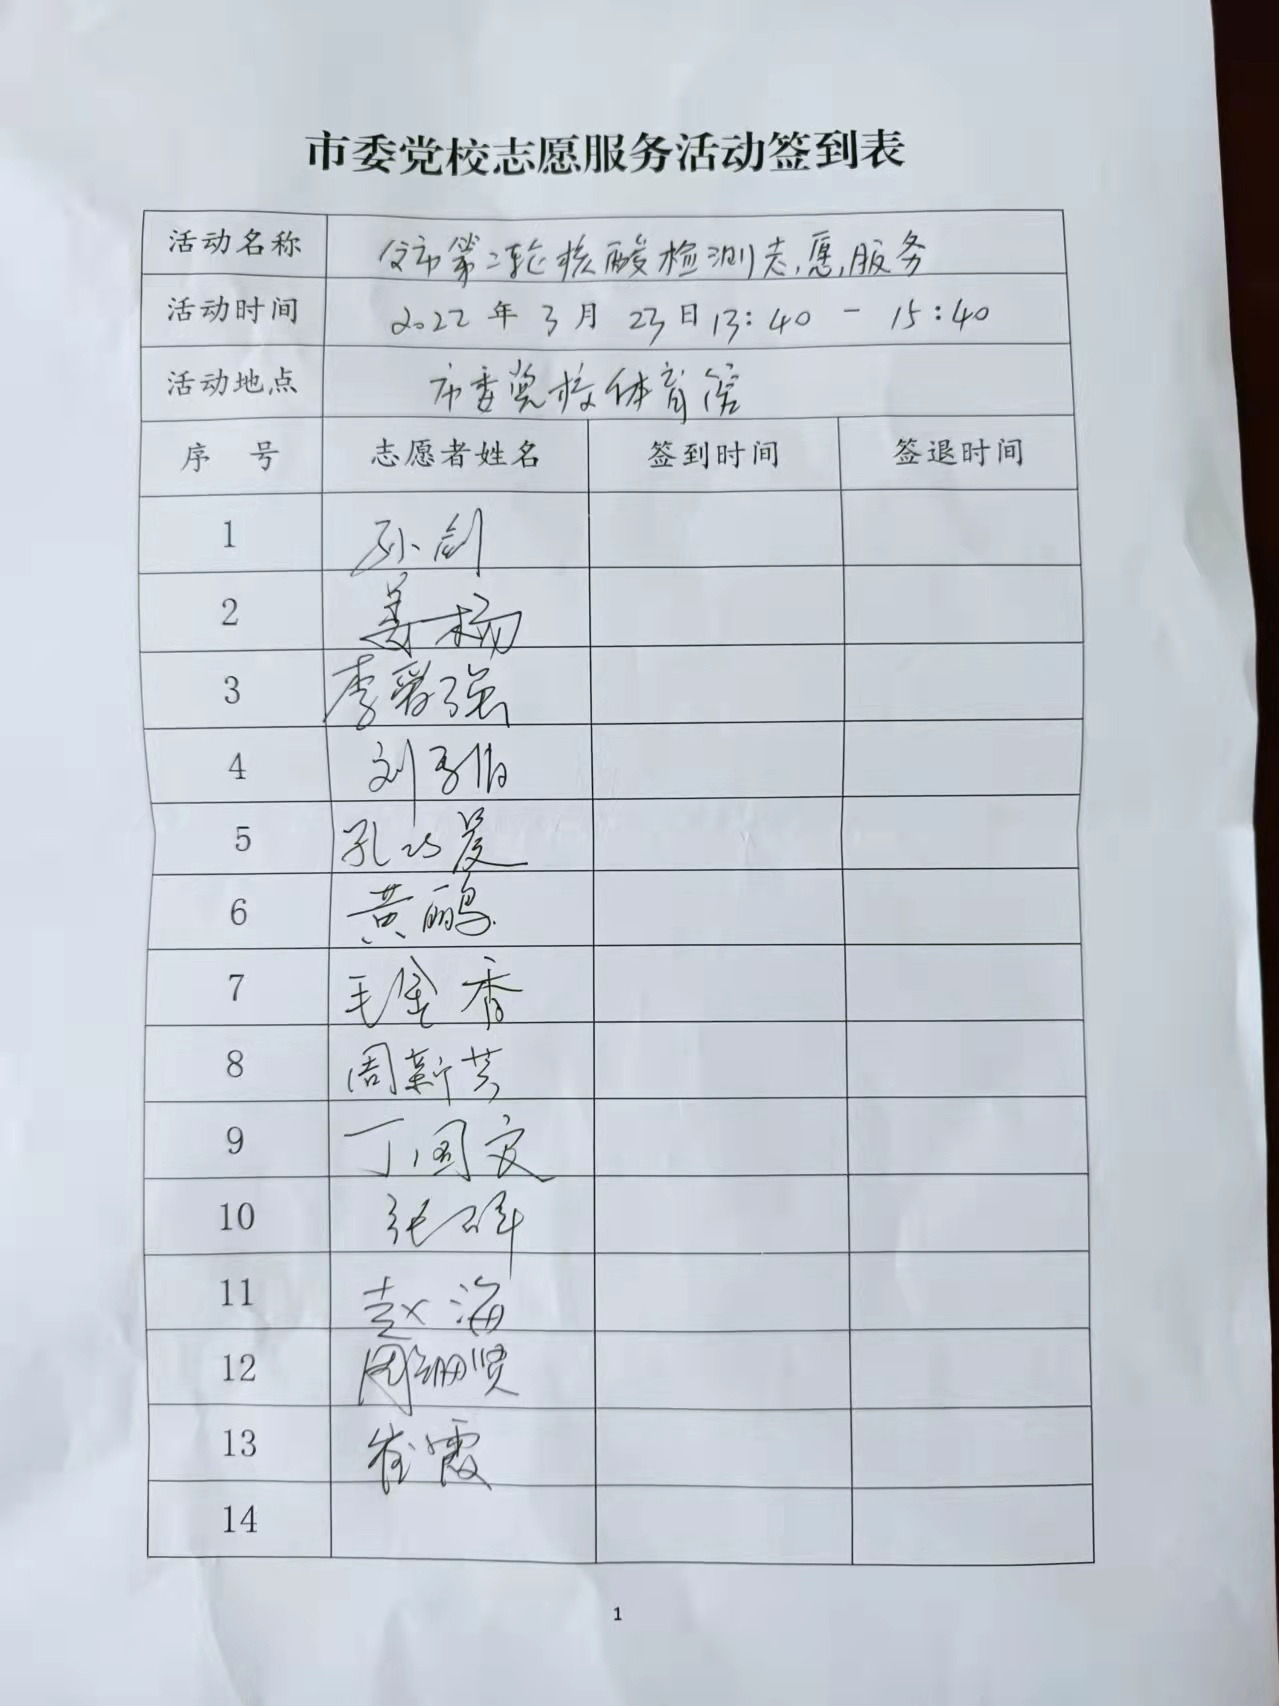 市委党校志愿服务活动签到表
活动名称 全市第二轮核酸检测志愿服务
活动时间 2022年3月23日13:40-15:40
活动地点 市委党校体育馆
序 号 志愿者姓名 签到时间 签退时间
1 孙剑
2 姜杨
3 李爱强
4 刘
5 孔
6 黄鹂
7 毛金香
8 周新芸
9 丁国文
10 张
11 赵海
12 周珊贤
13 崔霞
14
1